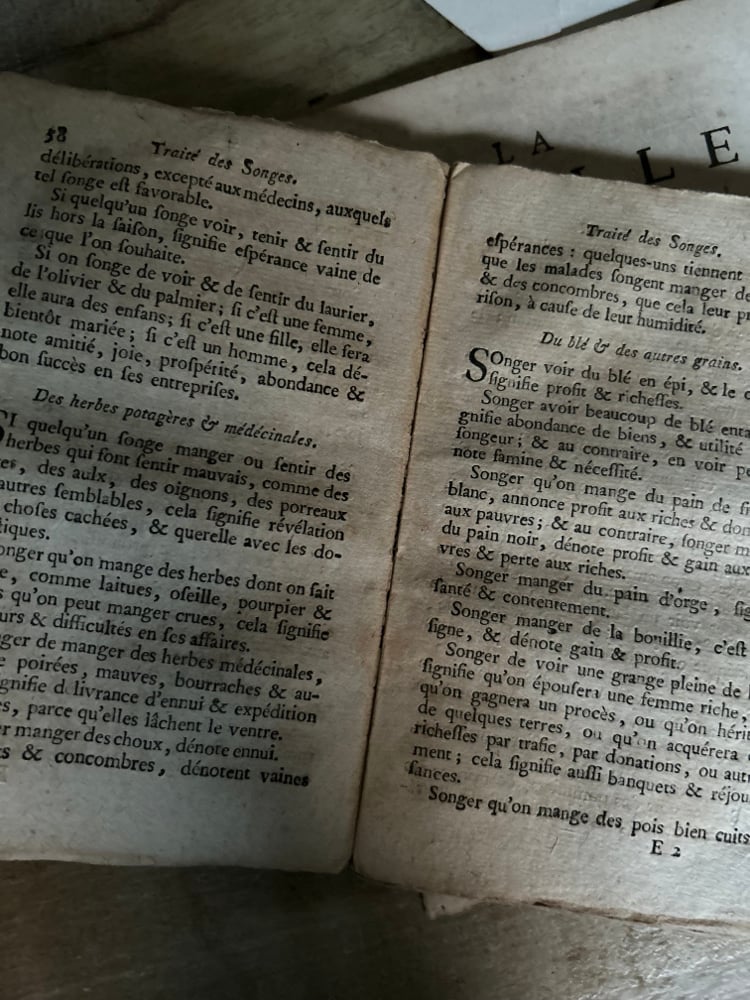 LA
LLE
58
Traité des Songes.
délibérations, excepté aux médecins, auxquels
tel ſonge eſt favorable.
Si quelqu'un ſonge voir, tenir & ſentir du
lis hors la ſaiſon, ſignifie eſpérance vaine de
ce que l'on ſouhaite.
Si on ſonge de voir & de ſentir du laurier,
de l'olivier & du palmier; ſi c'eſt une femme,
elle aura des enfans; ſi c'eſt une fille, elle ſera
bientôt mariée; ſi c'eſt un homme, cela dé-
note amitié, joie, proſpérité, abondance &
bon ſuccès en ſes entrepriſes.
Des herbes potagères & médécinales.
SI quelqu'un ſonge manger ou ſentir des
herbes qui font ſentir mauvais, comme des
, des aulx, des oignons, des porreaux
autres ſemblables, cela ſignifie révélation
choſes cachées, & querelle avec les do-
tiques.
onger qu'on mange des herbes dont on fait
e, comme laitues, oſeille, pourpier &
s qu'on peut manger crues, cela ſignifie
urs & difficultés en ſes affaires.
ger de manger des herbes médécinales,
e poirées, mauves, bourraches & au-
gnifie d livrance d'ennui & expédition
s, parce qu'elles lâchent le ventre.
er manger des choux, dénote ennui.
s & concombres, dénotent vaines
Traité des Songes.
eſpérances : quelques-uns tiennent
que les malades ſongent manger de
& des concombres, que cela leur pr
riſon, à cauſe de leur humidité.
Du blé & des autres grains.
SOnger voir du blé en épi, & le c
ſignifie profit & richeſſes.
Songer avoir beaucoup de blé enta
gnifie abondance de biens, & utilité
ſongeur; & au contraire, en voir pe
note famine & néceſſité.
Songer qu'on mange du pain de fr
blanc, annonce profit aux riches & dom
aux pauvres; & au contraire, ſonger m
du pain noir, dénote profit & gain aux
vres & perte aux riches.
Songer manger du pain d'orge, ſig
ſanté & contentement.
Songer manger de la bouillie, c'eſt
ſigne, & dénote gain & profit.
Songer de voir une grange pleine de
ſignifie qu'on épouſera une femme riche,
qu'on gagnera un procès, ou qu'on hérit
de quelques terres, ou qu'on acquérera
richeſſes par trafic, par donations, ou autr
ment; cela ſignifie auſſi banquets & réjou
ſances.
Songer qu'on mange des pois bien cuits
E 2